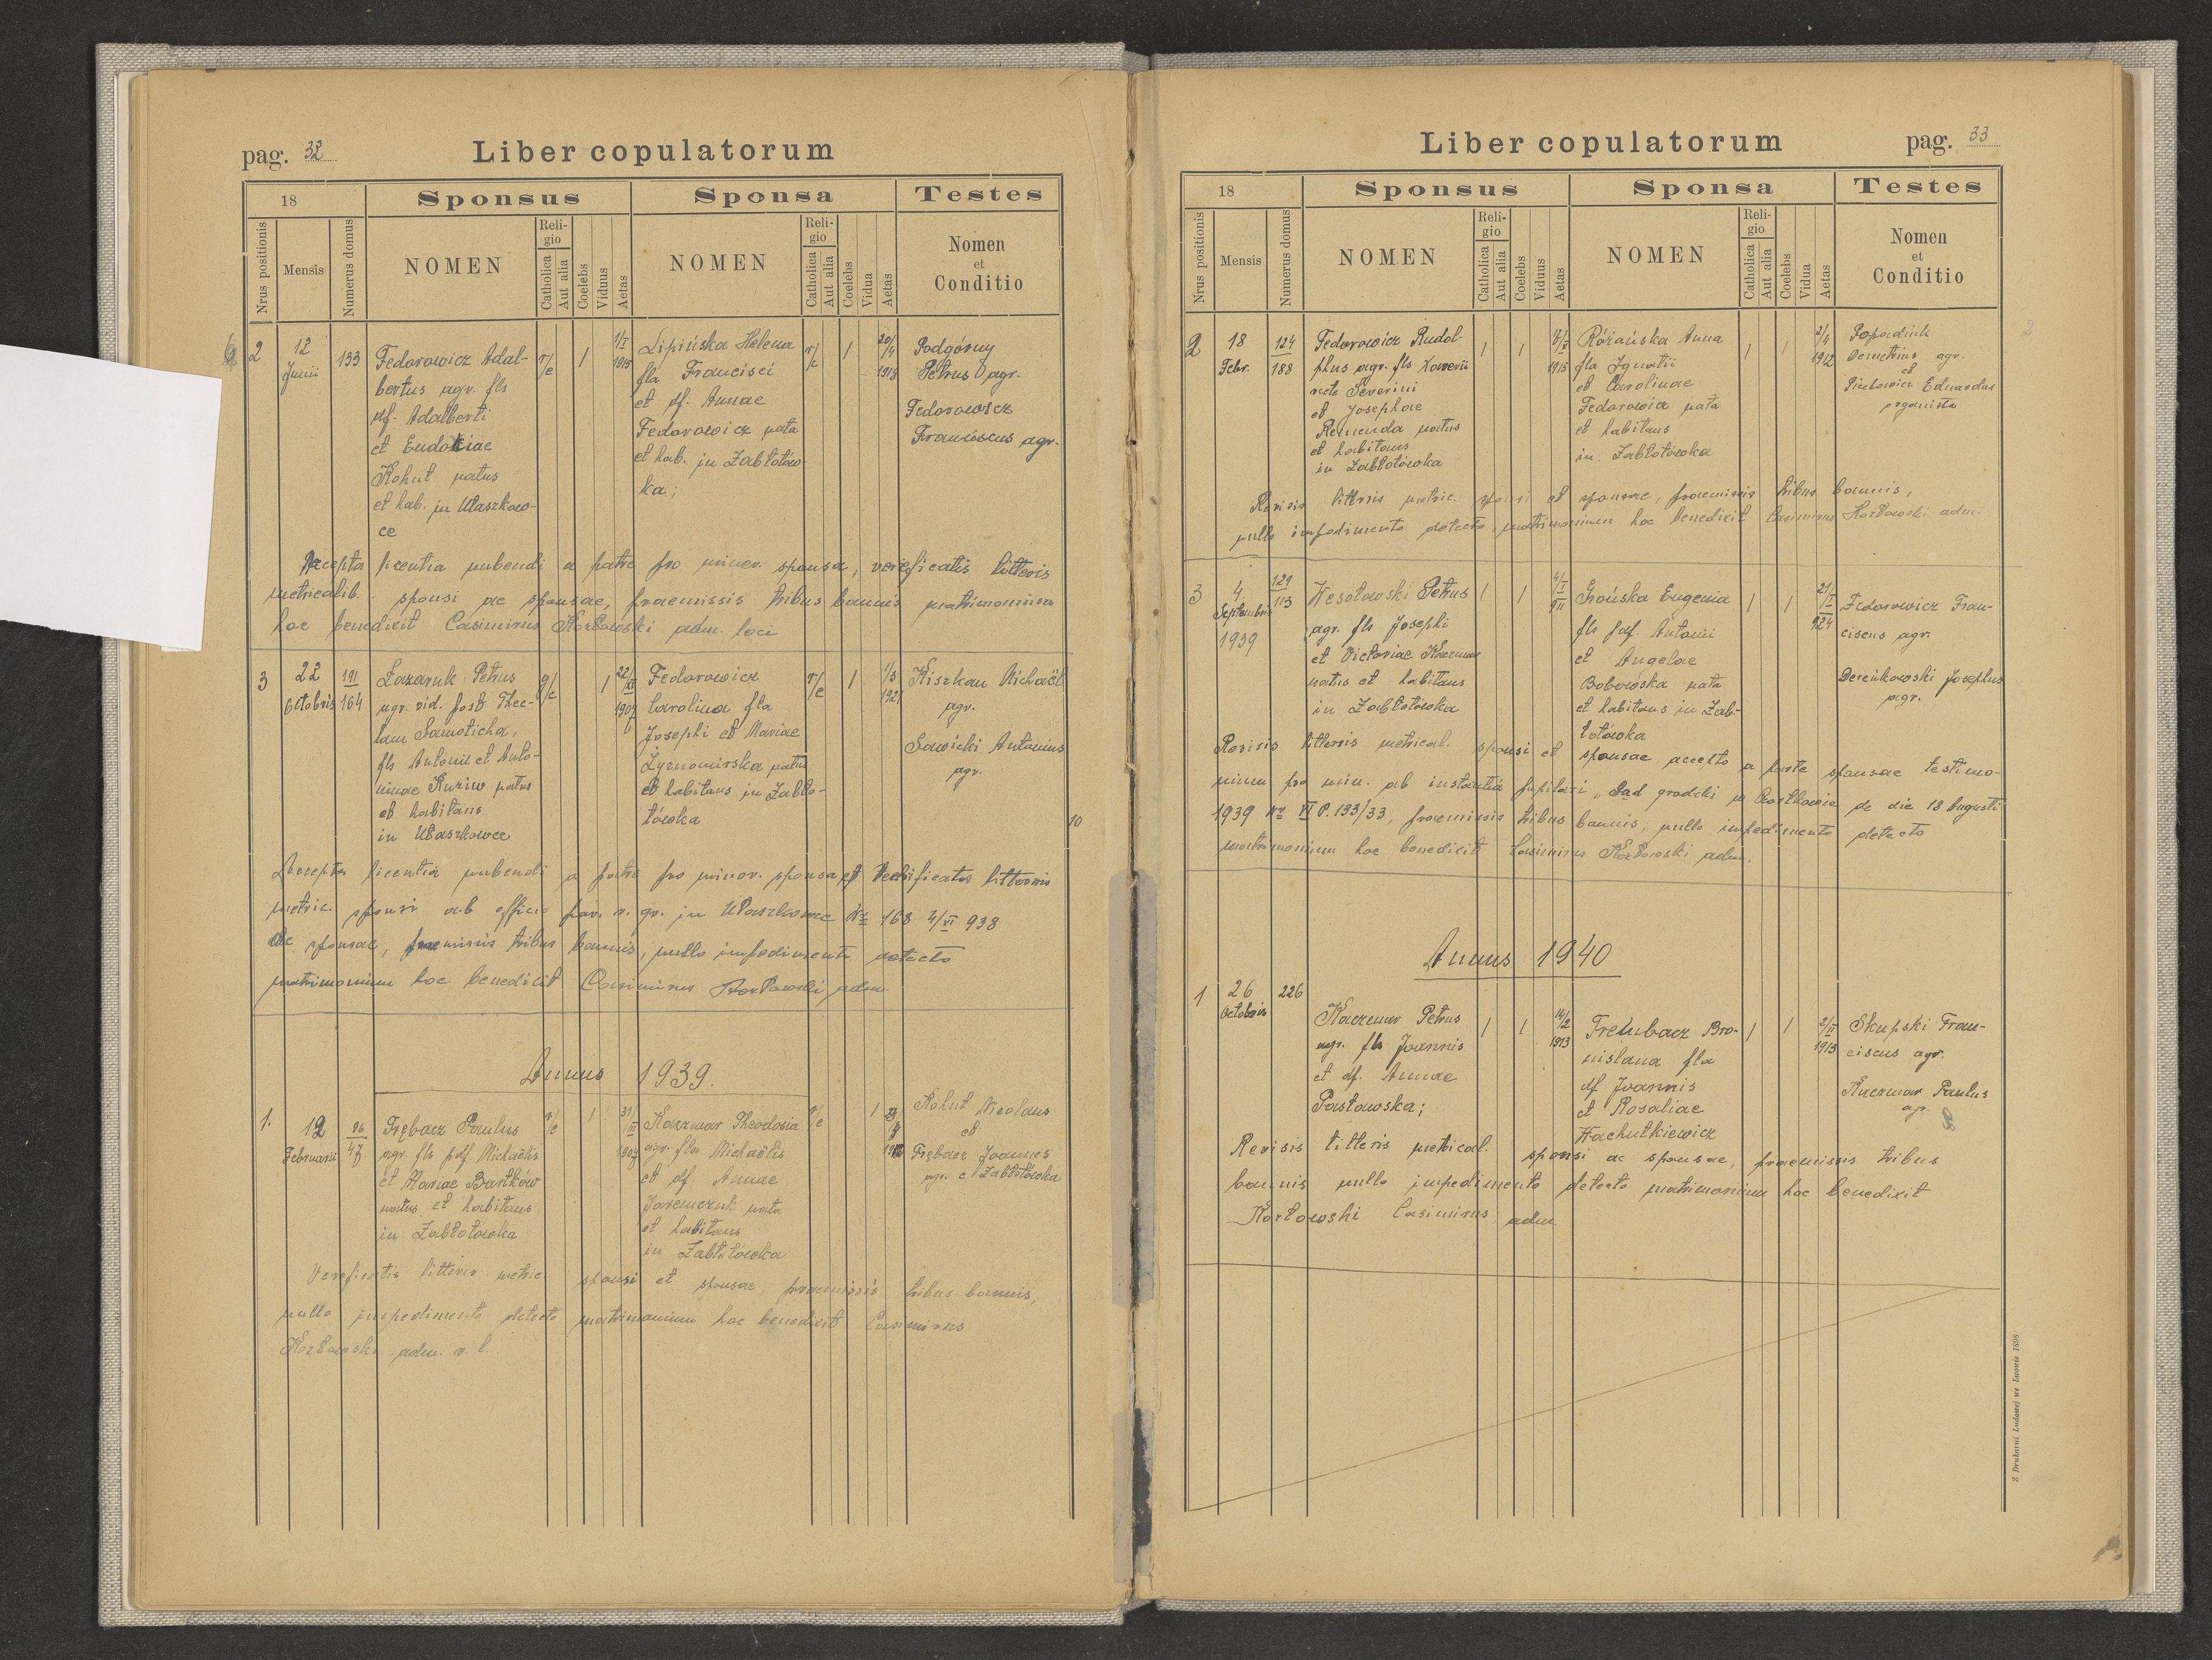 pag. 32
Liber copulatorum
18
Sponsus
Sponsa
Testes
Nrus positionis
Mensis
Numerus domus
NOMEN
Religio
Catholica
Aut alia
Coelebs
Viduus
Aetas
NOMEN
Religio
Catholica
Aut alia
Coelebs
Vidua
Aetas
Nomen
et
Conditio
2
12
Junii
133
Fedorowicz Adal-
bertus agr. fls
pdf. Adalberti
et Eudokiae
Kohut natus
et hab. in Ułaszkow-
ce
r/c
1
1/I
1915
Lipińska Helena
fla Francisci
et df. Annae
Fedorowicz nata
et hab. in Zabłotów-
ka;
r/c
1
20/4
1918
Podgórny
Petrus agr.
Fedorowicz
Franciscus agr.
Accepta licentia nubendi a patre pro minor. sponsa, verificatis litteris
metricalib. sponsi ac sponsae, praemissis tribus bannis matrimonium
hoc benedixit Casimirus Kozłowski adm. loci
3
22
Octobris
191
164
Łazaruk Petrus
agr. vid. post Thec-
lam Samoticha,
fls Antonii et Anto-
ninae Kuriw natus
et habitans
in Ułaszkowce
g/c
1
22/XI
1907
Fedorowicz
Carolina fla
Josephi et Mariae
Żyznomirska nata
et habitans in Zabło-
tówka
r/c
1
1/3
1921
Kiszkan Michaël
agr.
Sawicki Antonius
agr.
10
Accepta licentia nubendi a patre pro minor. sponsa et verificatis litteris
metric. sponsi ab officio par. r. gr. in Ułaszkowce Nr 168 4/VI 938
ac sponsae, praemissis tribus bannis, nullo impedimento detecto
matrimonium hoc benedixit Casimirus Kozłowski adm.
Annus 1939.
1.
12
Februarii
96
47
Trębacz Paulus
agr. fls pdf. Michaëlis
et Mariae Bartków
natus et habitans
in Zabłotówka
r/c
1
31/
1907
Kaczmar Theodosia
agr. fla Michaëlis
et df. Annae
Jaremczuk nata
et habitans
in Zabłotówka
r/c
1
Kohut Nicolaus
et
Trębacz Joannes
agr. e Zabłotówka
Verificatis litteris metric. sponsi et sponsae, praemissis tribus bannis,
nullo impedimento detecto matrimonium hoc benedixit Casimirus
Kozłowski adm. r. l.
Liber copulatorum
pag. 33
18
Sponsus
Sponsa
Testes
Nrus positionis
Mensis
Numerus domus
NOMEN
Religio
Catholica
Aut alia
Coelebs
Viduus
Aetas
NOMEN
Religio
Catholica
Aut alia
Coelebs
Vidua
Aetas
Nomen
et
Conditio
2
18
Febr.
124
188
Fedorowicz Rudol-
phus agr. fls Xaverii
recte Severini
et Josephae
Remenda natus
et habitans
in Zabłotówka
1
1
1915
Różańska Anna
fla Ignatii
et Carolinae
Fedorowicz nata
et habitans
in Zabłotówka
1
1
2/4
1912
2
Popadiuk
Demetrius agr.
et
Eduardus
organista
Revisis litteris metric. sponsi et sponsae, praemissis tribus bannis,
nullo impedimento detecto, matrimonium hoc benedixit Casimirus Kozłowski adm.
3
4.
Septembris
1939
129
113
Wesołowski Petrus
agr. fls Josephi
et Victoriae Kaczmar
natus et habitans
in Zabłotówka
1
1
4/I
911
Grońska Eugenia
fla pdf. Antonii
et Angelae
Bobowska nata
et habitans in Zab-
łotówka
1
1
21/I
924
Fedorowicz Fran-
ciscus agr.
Dereńkowski Josephus
agr.
Revisis litteris metrical. sponsi et sponsae accepto a parte sponsae testimo-
nium pro min. ab instantia pupilari „Sąd grodzki w Czortkowie de die 18 Augusti
1939 Nr VI P. 133/33, praemissis tribus bannis, nullo impedimento detecto
matrimonium hoc benedixit Casimirus Kozłowski adm.
Annus 1940
1
26
Octobris
226
Kaczmar Petrus
agr. fls Joannis
et df. Annae
Pasławska;
1
1
14/2
1913
Trembacz Bro-
nislaua fla
df Joannis
et Rosaliae
Hachutkiewicz
1
1
2/II
1913
Skupski Fran-
ciscus agr.
Kaczmar Paulus
agr.
8
Revisis litteris metrical. sponsi ac sponsae, praemissis tribus
bannis nullo impedimento detecto matrimonium hoc benedixit
Kozłowski Casimirus adm
Z Drukarni Ludowej we Lwowie 1898